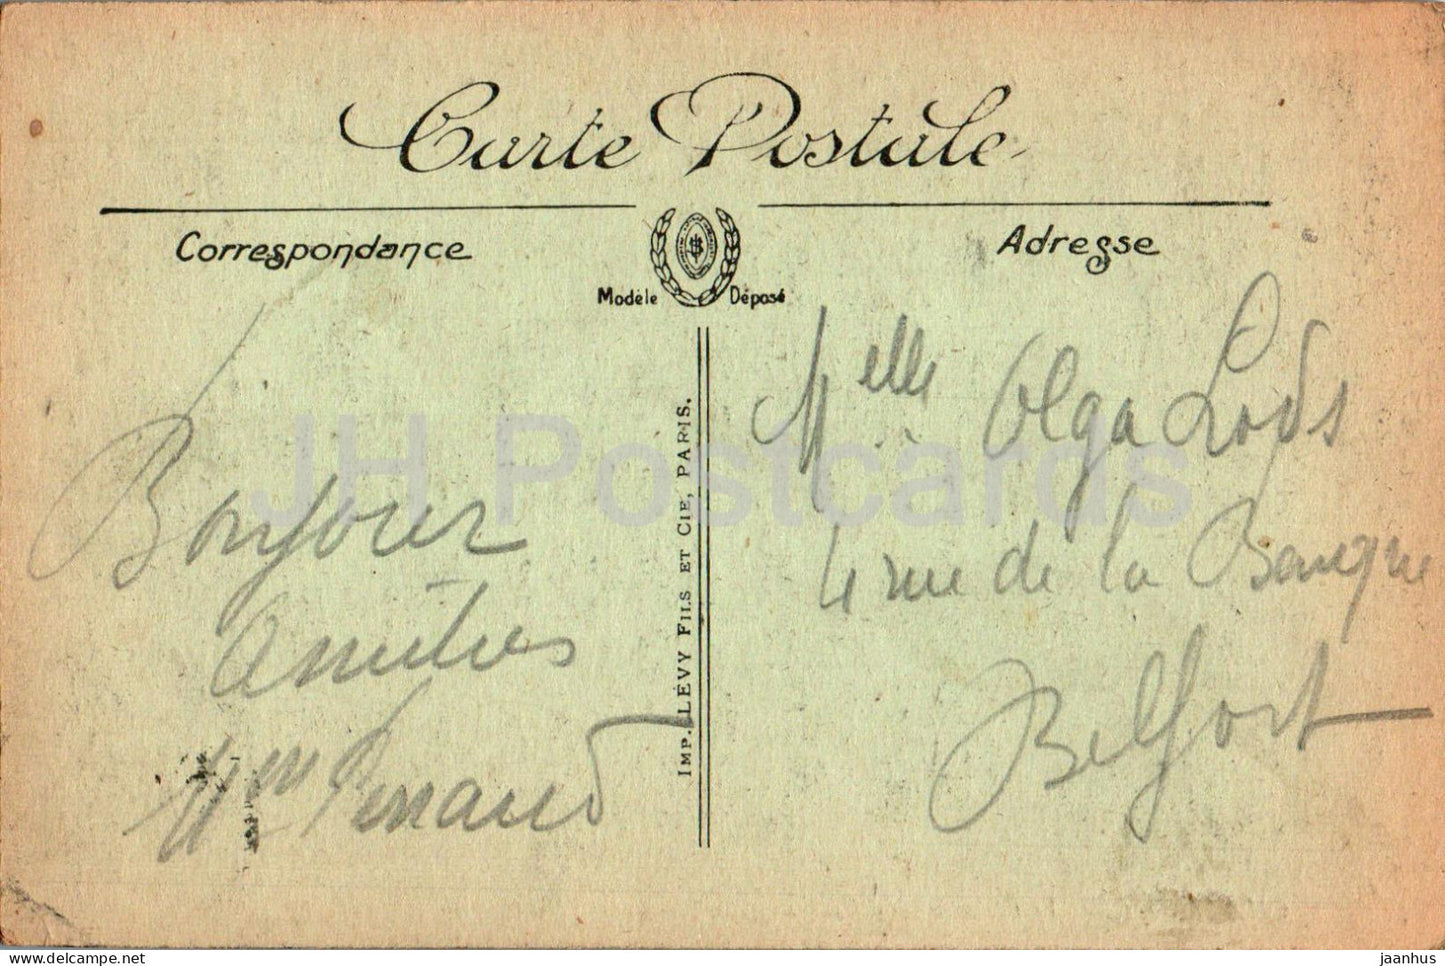 Carte Postale
Correspondance
Adresse
Modèle Déposé
Bonjour
Amitiés
Mme
Melle Olga Lods
4 rue de la Banque
Belfort
IMP. LÉVY FILS ET CIE, PARIS.
JH Postcards
https://www.delcampe.net
jaanhus